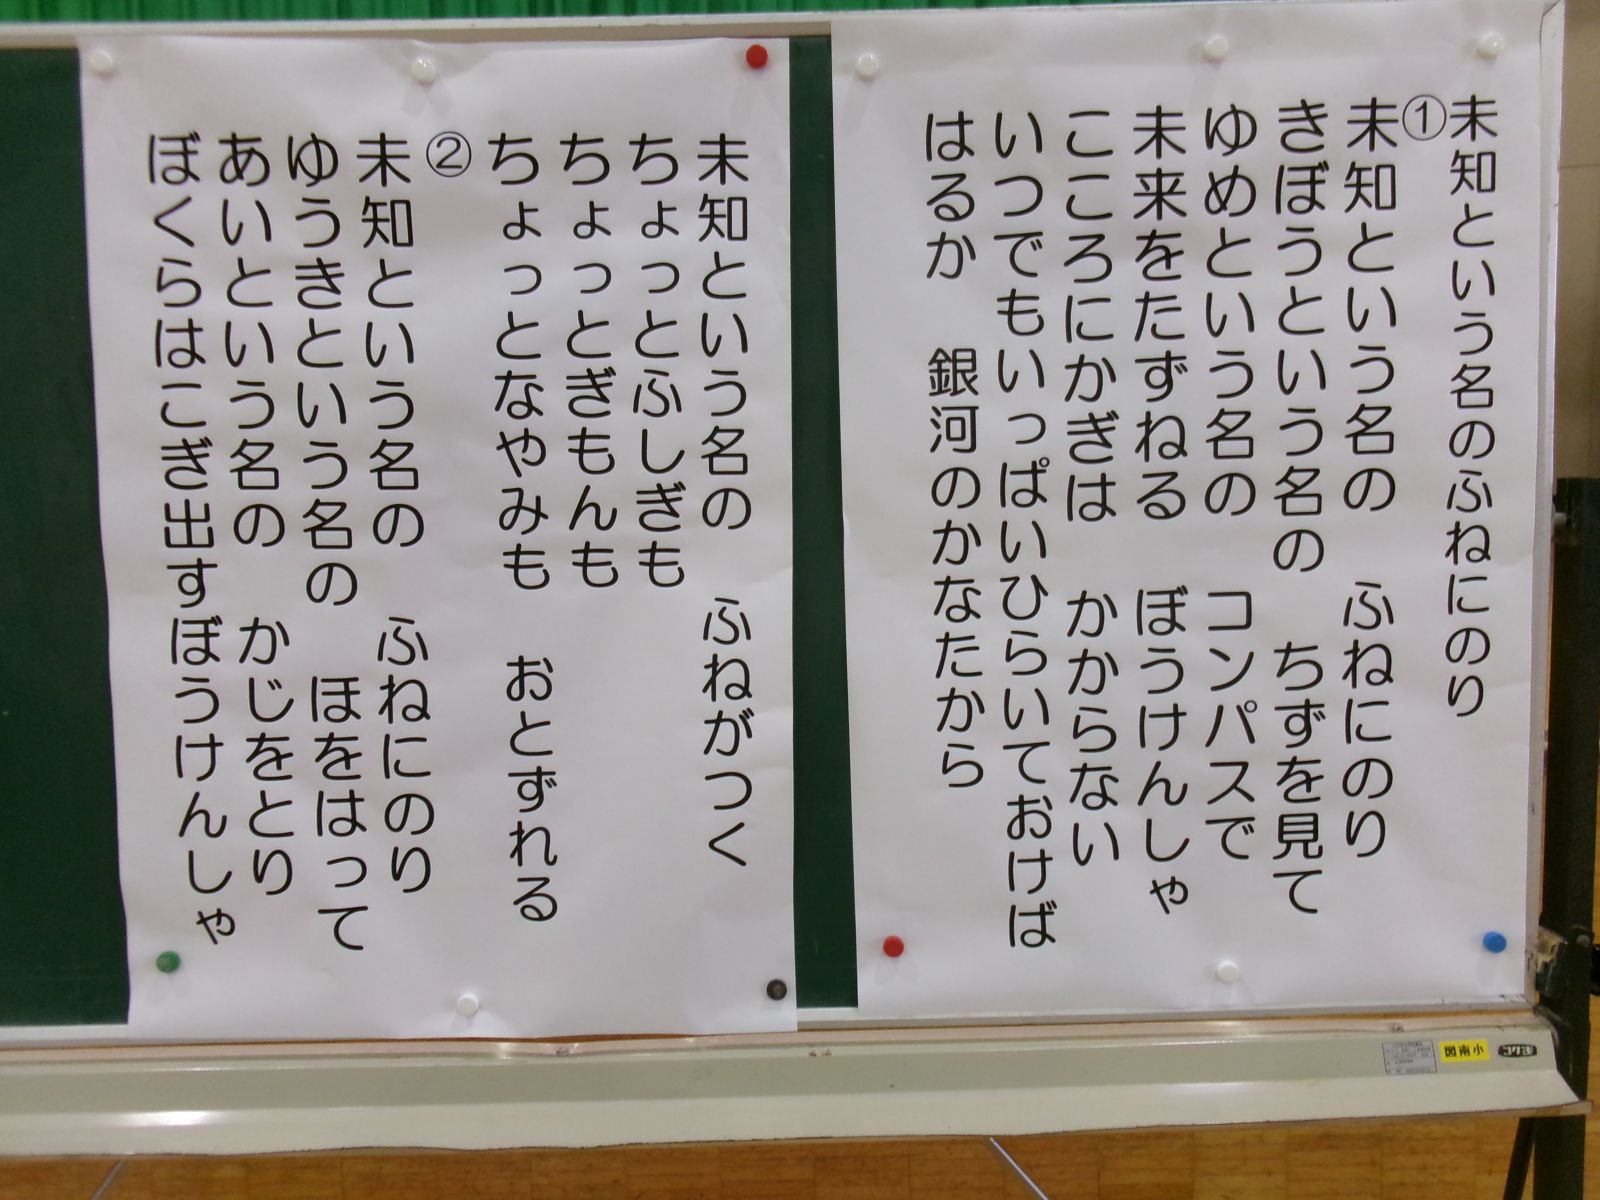 未知という名のふねにのり
①
未知という名の　ふねにのり
きぼうという名の　ちずを見て
ゆめという名の　コンパスで
未来をたずねる　ぼうけんしゃ
こころにかぎは　かからない
いつでもいっぱいひらいておけば
はるか　銀河のかなたから
未知という名の　ふねがつく
ちょっとふしぎも
ちょっとぎもんも
ちょっとなやみも　おとずれる
②
未知という名の　ふねにのり
ゆうきという名の　ほをはって
あいという名の　かじをとり
ぼくらはこぎ出すぼうけんしゃ
図南小
コクヨ